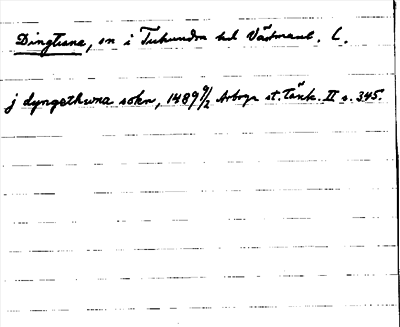 Dingtuna, sn i Tuhundra hd Västmanl. L.
j dyngethwna sokn, 1489 9/2 Arboga st. Tänk. II s. 345.